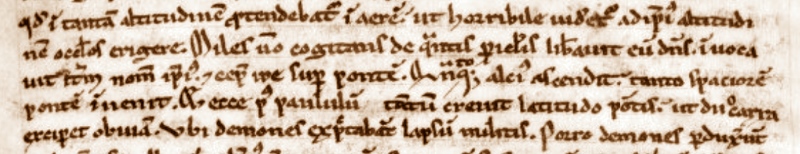 qd̛ ĩ tantã altitudinẽ ꝓtendebat᷑ ĩ aere. ut horribile uideret᷑ ad ip̃i᷒ altitudi
nẽ oculos erigere. Miles u̾o cogitans de q̃ntis ꝑiclis lib̃auit eũ dñs. ĩuoca
uit tm̃ nom̃ ip̃i᷒. ⁊ cep̃ ire sup̱ pontẽ. alci᷒ ascendit. tanto spaciorẽ
pontẽ ĩuenit. Et ecce p᷒ paululũ tantũ creuit latitudo põtis. ut duo carra
exciꝑet obuiã. Vbi demones exp̱ctabãt lapsũ militis. Porro demones ꝑdux̃unt